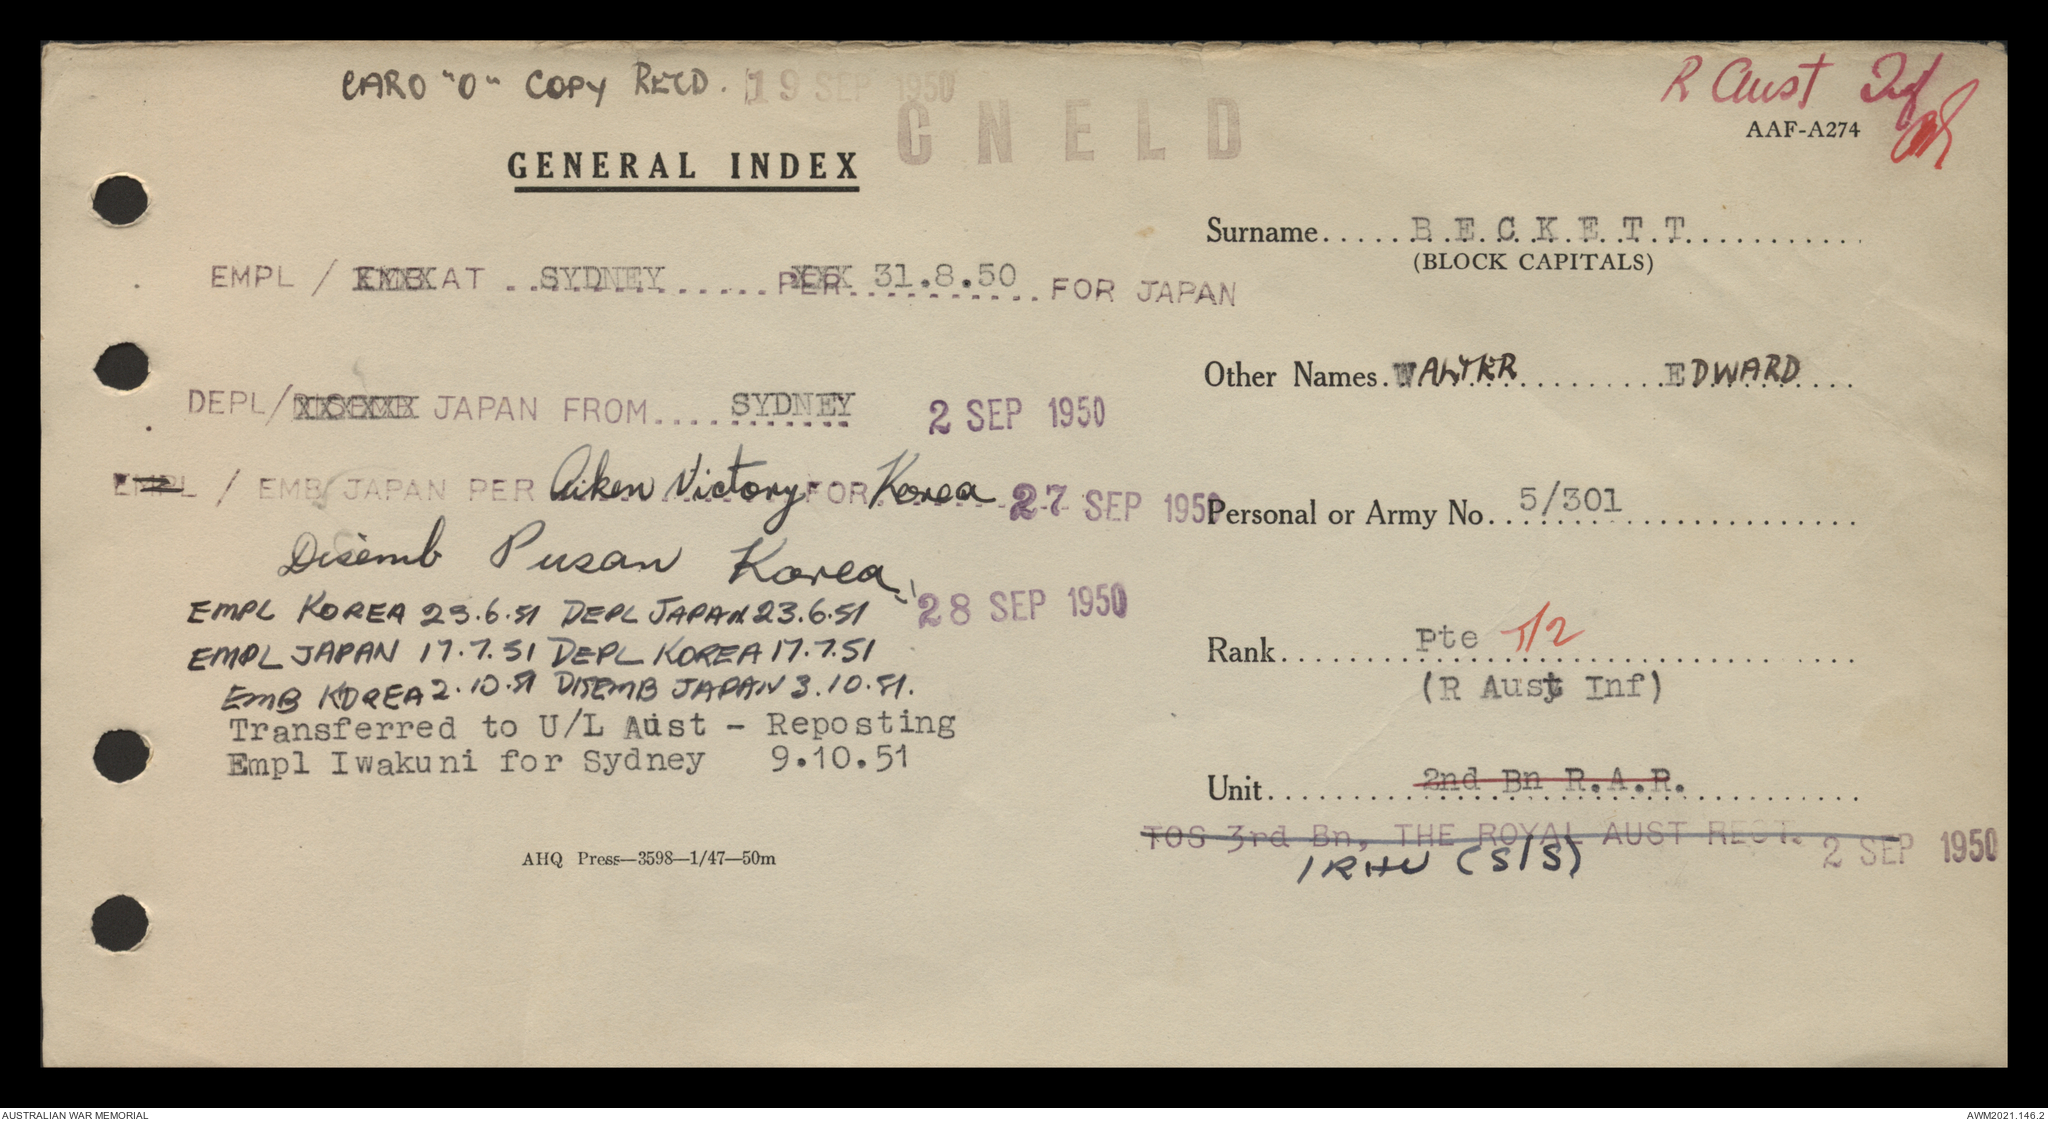 CARO "O" COPY RECD. 19 SEP 1950
R Aust Inf
AAF-A274
CNELD
GENERAL INDEX
Surname BECKETT
(BLOCK CAPITALS)
EMPL / EMB AT SYDNEY PER 31.8.50 FOR JAPAN
Other Names. WALTER EDWARD
DEPL/ JAPAN FROM SYDNEY 2 SEP 1950
EMPL / EMB JAPAN PER Aiken Victory FOR Korea 27 SEP 1950
Personal or Army No. 5/301
Disemb Pusan Korea 28 SEP 1950
EMPL KOREA 23.6.51 DEPL JAPAN 23.6.51
EMPL JAPAN 17.7.51 DEPL KOREA 17.7.51
EMB KOREA 2.10.51 DISEMB JAPAN 3.10.51.
Transferred to U/L Aust - Reposting
Empl Iwakuni for Sydney 9.10.51
Rank Pte T/2
(R Aust Inf)
Unit 2nd Bn R.A.R.
TOS 3rd Bn, THE ROYAL AUST REGT. 2 SEP 1950
1 RHU (S/S)
AHQ Press—3598—1/47—50m
AUSTRALIAN WAR MEMORIAL
AWM2021.146.2